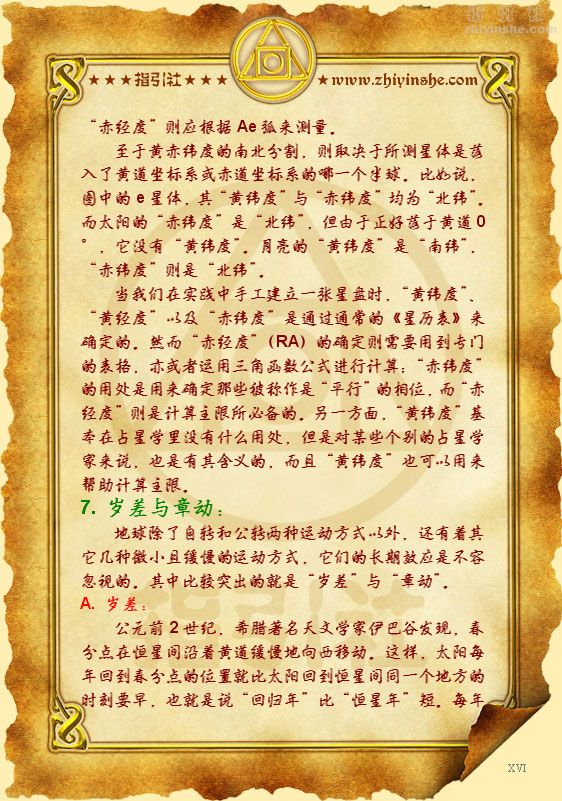 指引社
zhiyinshe.com
★★★指引社★★★
★www.zhiyinshe.com
“赤经度”则应根据 Ae 弧来测量。
至于黄赤纬度的南北分割，则取决于所测星体是落
入了黄道坐标系或亦道坐标系的哪一个半球。比如说，
图中的 e 星体，其“黄纬度”与“赤纬度”均为“北纬”。
而太阳的“赤纬度”是“北纬”，但由于正好落于黄道 0
°，它没有“黄纬度”。月亮的“黄纬度”是“南纬”，
“赤纬度”则是“北纬”。
当我们在实践中手工建立一张星盘时，“黄纬度”、
“黄经度”以及“赤纬度”是通过通常的《星历表》来
确定的。然而“赤经度”（RA）的确定则需要用到专门
的表格，亦或者运用三角函数公式进行计算；“赤纬度”
的用处是用来确定那些被称作是“平行”的相位，而“赤
经度”则是计算主限所必备的。另一方面，“黄纬度”基
本在占星学里没有什么用处，但是对某些个别的占星学
家来说，也是有其含义的，而且“黄纬度”也可以用来
帮助计算主限。
7. 岁差与章动：
地球除了自转和公转两种运动方式以外，还有着其
它几种微小且缓慢的运动方式，它们的长期效应是不容
忽视的。其中比较突出的就是“岁差”与“章动”。
A. 岁差：
公元前 2 世纪，希腊著名天文学家伊巴谷发现，春
分点在恒星间沿着黄道缓慢地向西移动。这样，太阳每
年回到春分点的位置就比太阳回到恒星间同一个地方的
时刻要早，也就是说“回归年”比“恒星年”短。每年
XVI
指引社